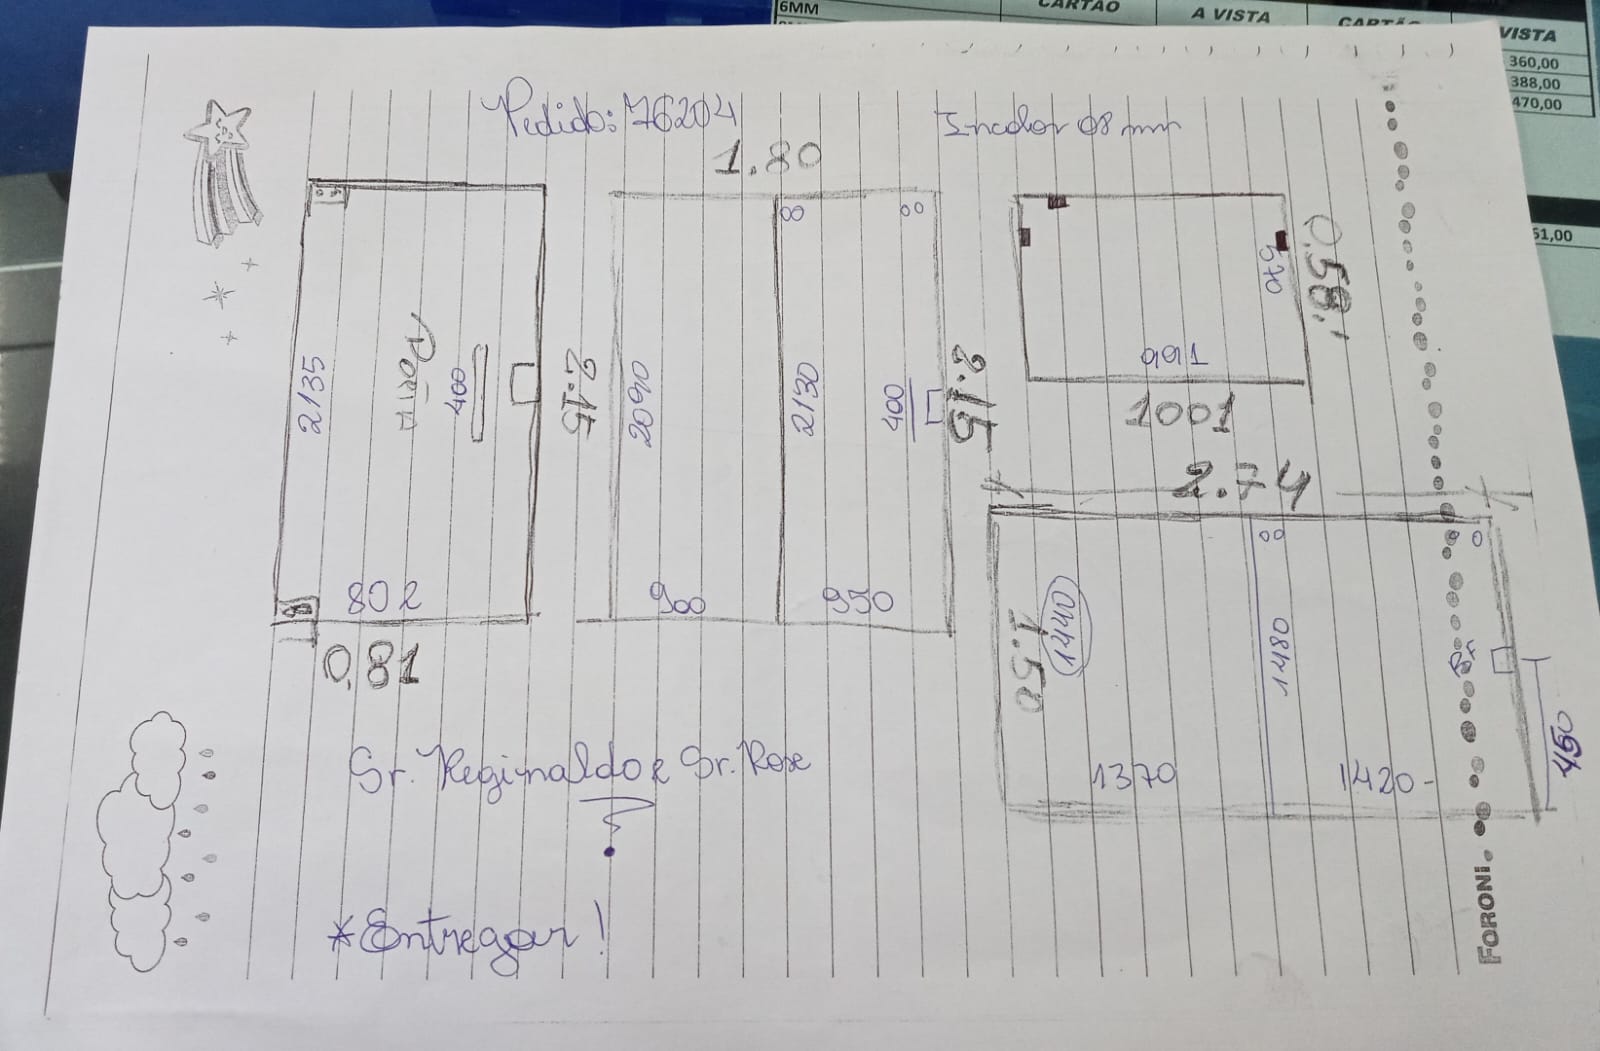 6MM
CARTÃO
A VISTA
CARTÃO
VISTA
360,00
388,00
470,00
51,00
Pedido: 76204
Incolor 08 mm
1.80
2135
Porta
400
2.15
802
0,81
2090
2130
400
2.15
900
950
570
0.58,1
991
1001
2.74
1.50
1440
1480
1370
1420-
450
Sr. Reginaldo e Sr. Rose
*Entregar!
FORONI